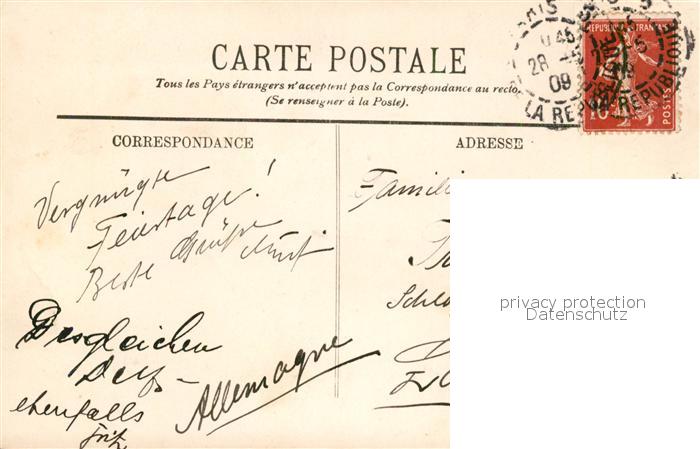 CARTE POSTALE
Tous les Pays étrangers n'acceptent pas la Correspondance au recto.
(Se renseigner à la Poste).
CORRESPONDANCE
Vergnügte
Feiertage!
Beste Grüße
Desgleichen
ebenfalls
Fritz
Allemagne
ADRESSE
Famili
Schlo
privacy protection
Datenschutz
REPUBLIQUE FRANÇAISE
POSTES
10
PARIS
28
09
LA REPUBLIQUE